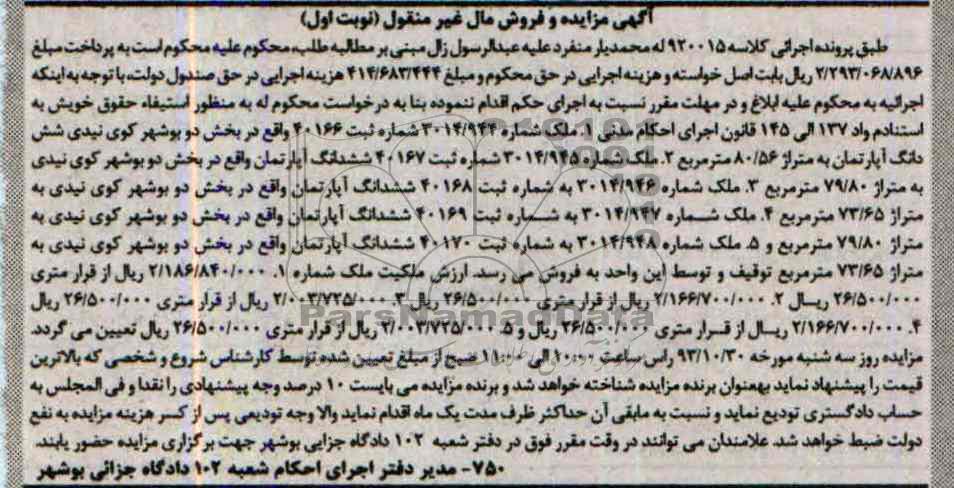 آگهی مزایده و فروش مال غیر منقول (نوبت اول)
طبق پرونده اجرائی کلاسه ۹۲۰۰۱۵ له محمدیار منفرد علیه عبدالرسول زال مبنی بر مطالبه طلب، محکوم علیه محکوم است به پرداخت مبلغ
۲/۲۹۳/۰۶۸/۸۹۶ ریال بابت اصل خواسته و هزینه اجرایی در حق محکوم و مبلغ ۴۱۴/۶۸۳/۴۴۴ هزینه اجرایی در حق صندول دولت، با توجه به اینکه
اجرائیه به محکوم علیه ابلاغ و در مهلت مقرر نسبت به اجرای حکم اقدام ننموده بنا به درخواست محکوم له به منظور استیفاء حقوق خویش به
استنادم واد ۱۳۷ الی ۱۴۵ قانون اجرای احکام مدنی ۱. ملک شماره ۳۰۱۴/۹۴۴ شماره ثبت ۴۰۱۶۶ واقع در بخش دو بوشهر کوی نیدی شش
دانگ آپارتمان به متراژ ۸۰/۵۶ مترمربع ۲. ملک شماره ۳۰۱۴/۹۴۵ شماره ثبت ۴۰۱۶۷ ششدانگ آپارتمان واقع در بخش دو بوشهر کوی نیدی
به متراژ ۷۹/۸۰ مترمربع ۳. ملک شماره ۳۰۱۴/۹۴۶ به شماره ثبت ۴۰۱۶۸ ششدانگ آپارتمان واقع در بخش دو بوشهر کوی نیدی به
متراژ ۷۳/۶۵ مترمربع ۴. ملک شماره ۳۰۱۴/۹۴۷ به شماره ثبت ۴۰۱۶۹ ششدانگ آپارتمان واقع در بخش دو بوشهر کوی نیدی به
متراژ ۷۹/۸۰ مترمربع و ۵. ملک شماره ۳۰۱۴/۹۴۸ به شماره ثبت ۴۰۱۷۰ ششدانگ آپارتمان واقع در بخش دو بوشهر کوی نیدی به
متراژ ۷۳/۶۵ مترمربع توقیف و توسط این واحد به فروش می رسد. ارزش ملکیت ملک شماره ۱. ۲/۱۸۶/۸۴۰/۰۰۰ ریال از قرار متری
۲۶/۵۰۰/۰۰۰ ریال ۲. ۲/۱۶۶/۷۰۰/۰۰۰ ریال از قرار متری ۲۶/۵۰۰/۰۰۰ ریال ۳. ۲/۰۰۳/۷۲۵/۰۰۰ ریال از قرار متری ۲۶/۵۰۰/۰۰۰ ریال
۴. ۲/۱۶۶/۷۰۰/۰۰۰ ریال از قرار متری ۲۶/۵۰۰/۰۰۰ ریال و ۵. ۲/۰۰۳/۷۲۵/۰۰۰ ریال از قرار متری ۲۶/۵۰۰/۰۰۰ ریال تعیین می گردد.
مزایده روز سه شنبه مورخه ۹۳/۱۰/۳۰ راس ساعت ۱۰:۰۰ الی ۱۱:۰۰ صبح از مبلغ تعیین شده توسط کارشناس شروع و شخصی که بالاترین
قیمت را پیشنهاد نماید بهعنوان برنده مزایده شناخته خواهد شد و برنده مزایده می بایست ۱۰ درصد وجه پیشنهادی را نقدا و فی المجلس به
حساب دادگستری تودیع نماید و نسبت به مابقی آن حداکثر ظرف مدت یک ماه اقدام نماید والا وجه تودیعی پس از کسر هزینه مزایده به نفع
دولت ضبط خواهد شد. علامندان می توانند در وقت مقرر فوق در دفتر شعبه ۱۰۲ دادگاه جزایی بوشهر جهت برگزاری مزایده حضور یابند.
۷۵۰- مدیر دفتر اجرای احکام شعبه ۱۰۲ دادگاه جزائی بوشهر
ParsNamadData